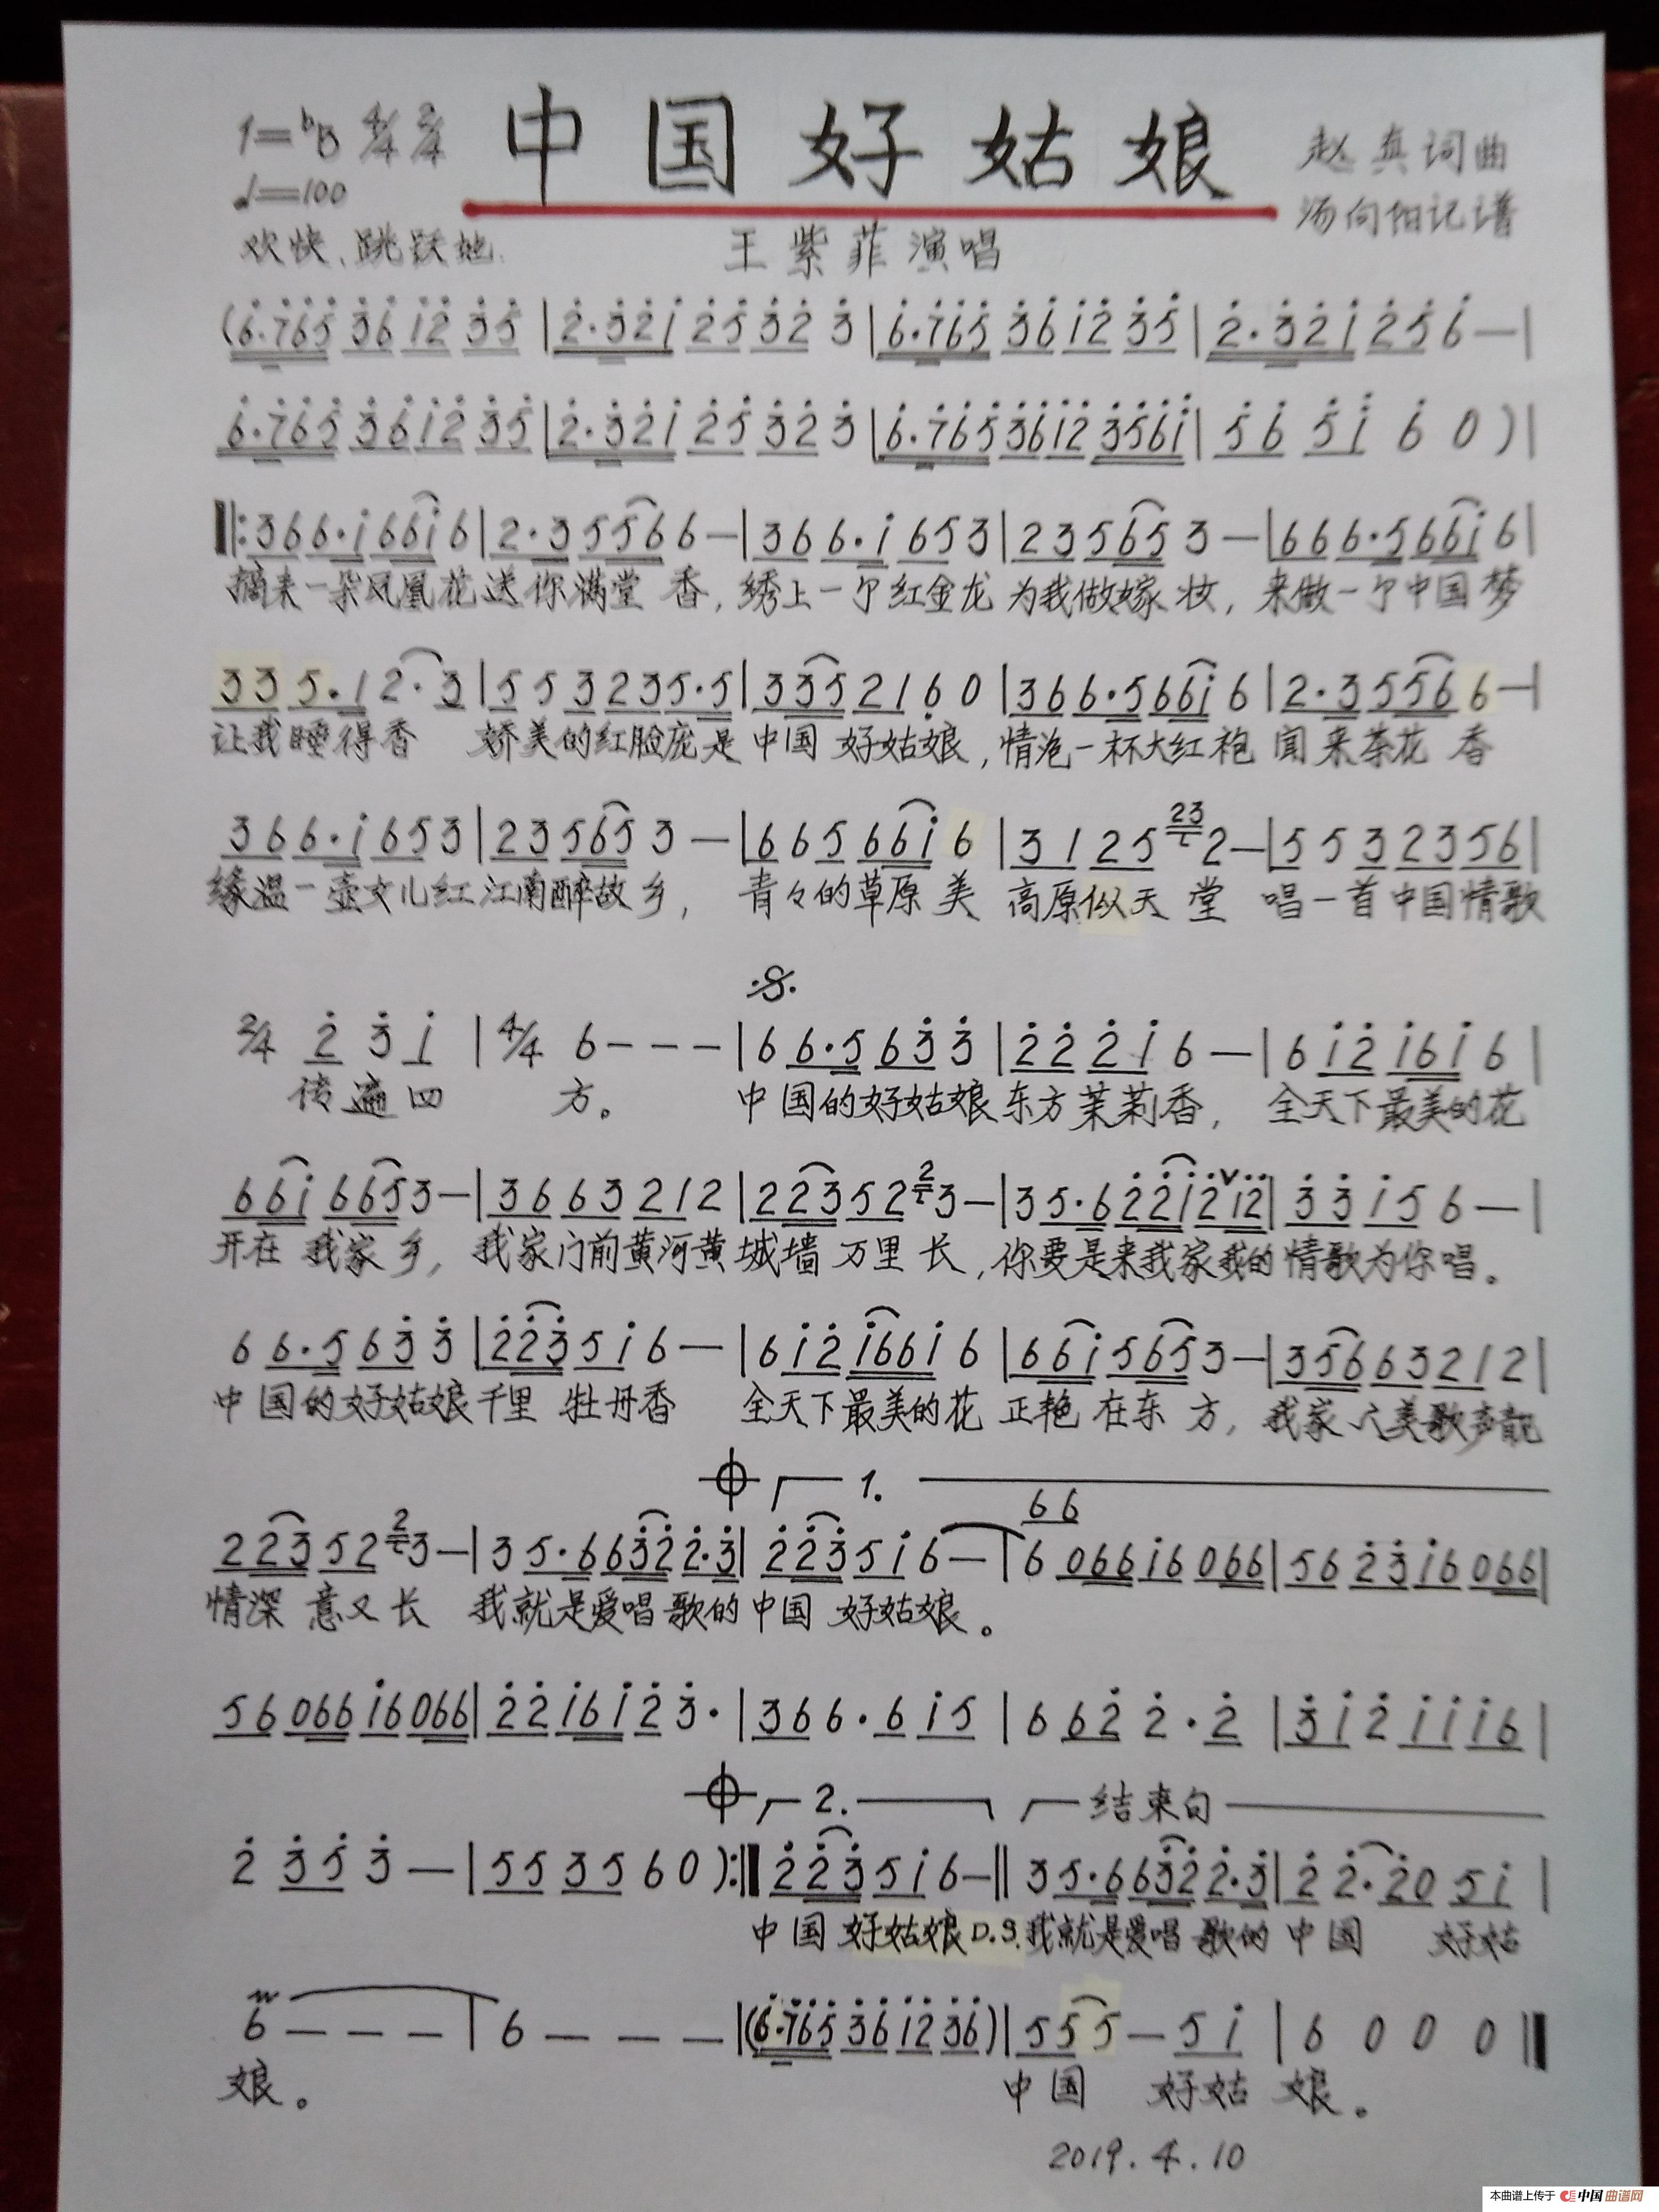 1=♭B 4/4 2/4
中国好姑娘
赵真词曲
♩=100
汤向阳记谱
欢快、跳跃地
王紫菲演唱
(6·765 36 12 35|2·321 25 32 3|6·765 36 12 35|2·321 25 6—|
6·765 36 12 35|2·321 25 32 3|6·765 3612 3561|56 51 6 0)|
‖:36 6·1 661 6|2·3 5566—|36 6·1 65 3|23 565 3—|66 6·5 661 6|
摘来一朵凤凰花送你满堂香,绣上一个红金龙为我做嫁妆,来做一个中国梦
33 5·1 2·3|55 3 235·5|335 21 6 0|36 6·5 661 6|2·3 5566—|
让我睡得香 娇美的红脸庞是中国好姑娘,情泡一杯大红袍闻来茶花香
36 6·1 65 3|23 565 3—|6 6 5 661 6|31 25 23 2—|5 5 3 23 56|
缘温一壶女儿红江南醉故乡,青々的草原美高原似天堂 唱一首中国情歌
2/4 2 3 1|4/4 6———|6 6·5 63 3|22 21 6—|6 12 161 6|
传遍四方。 中国的好姑娘东方茉莉香, 全天下最美的花
661 665 3—|36 63 21 2|223 52 2 3—|3 5·6 221 2 V 12|33 15 6—|
开在我家乡,我家门前黄河黄城墙万里长,你要是来我家我的情歌为你唱。
6 6·5 63 3|223 51 6—|6 12 1661 6|661 565 3—|356 63 21 2|
中国的好姑娘千里牡丹香 全天下最美的花正艳在东方,我家人美歌声靓
1.
66
223 52 2 3—|3 5·6 632 2·3|223 51 6—|6 066 16 066|56 23 16 066|
情深意又长 我就是爱唱歌的中国好姑娘。
56 066 16 066|22 161 2 3·|36 6·6 15|6 62 2·2|31 2 11 16|
2. 结束句
2 35 3—|55 35 6 0):‖223 51 6—‖3 5·6 632 2·3|2 2·20 51|
中国好姑娘D.S.我就是爱唱歌的中国 好姑
6———|6———|(6·765 36 12 36)|55 5—51|6 0 0 0‖
娘。 中国 好姑娘。
2019.4.10
本曲谱上传于 中国曲谱网